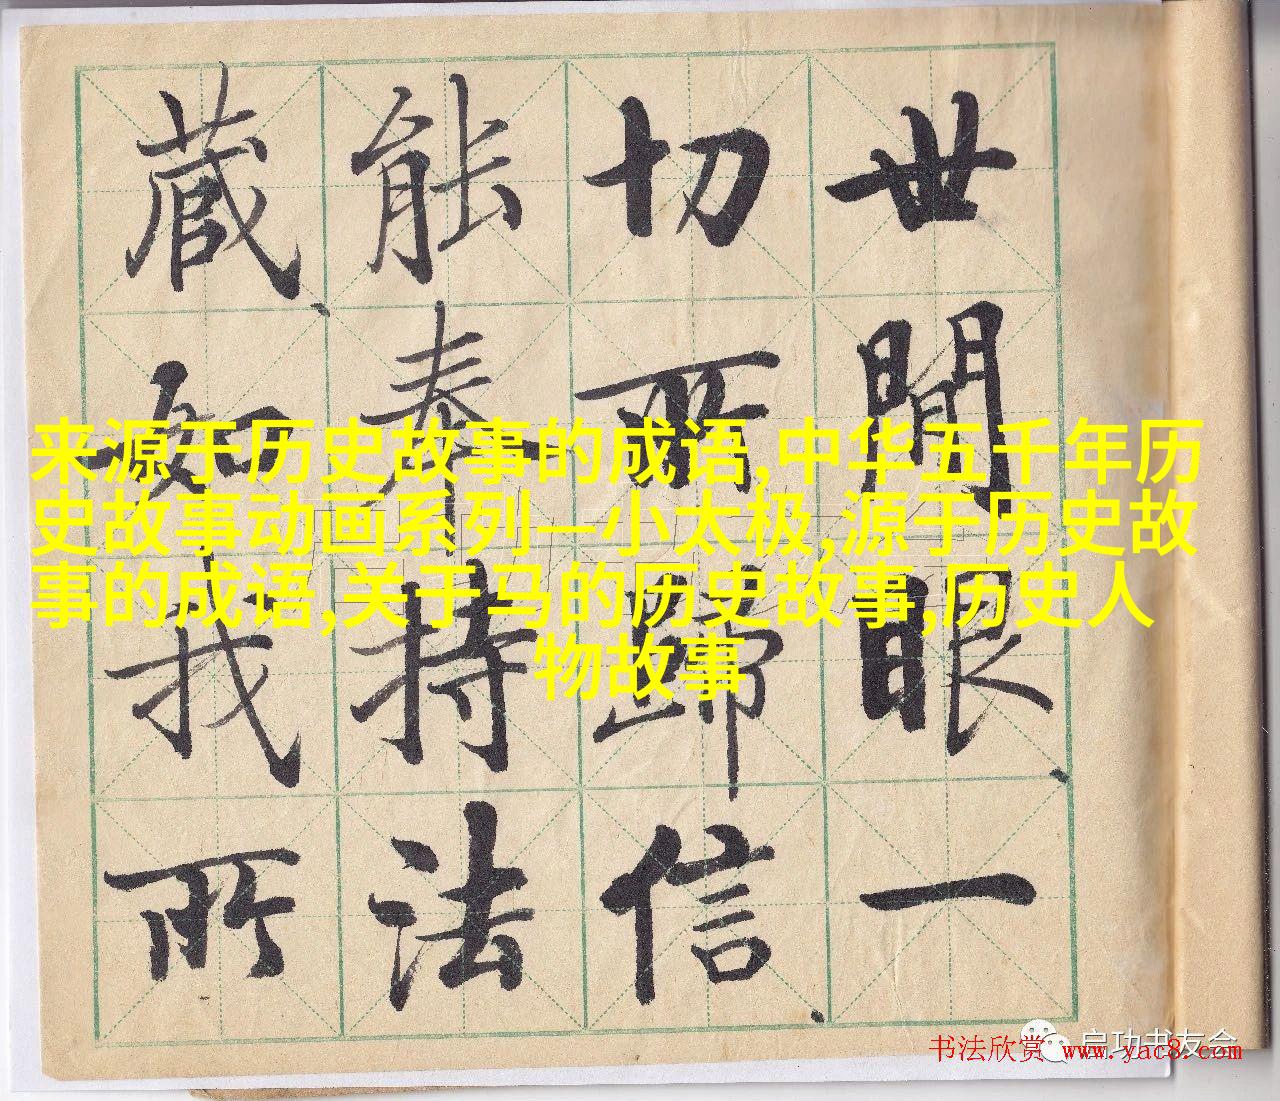 世間眼一
切所歸信
能奉持法
藏如我所
来源于历史故事的成语,中华五千年历
史故事动画系列—小太极,源于历史故
事的成语,关于马的历史故事,历史人
物故事
启功书友会
书法欣赏 www.yac8.com